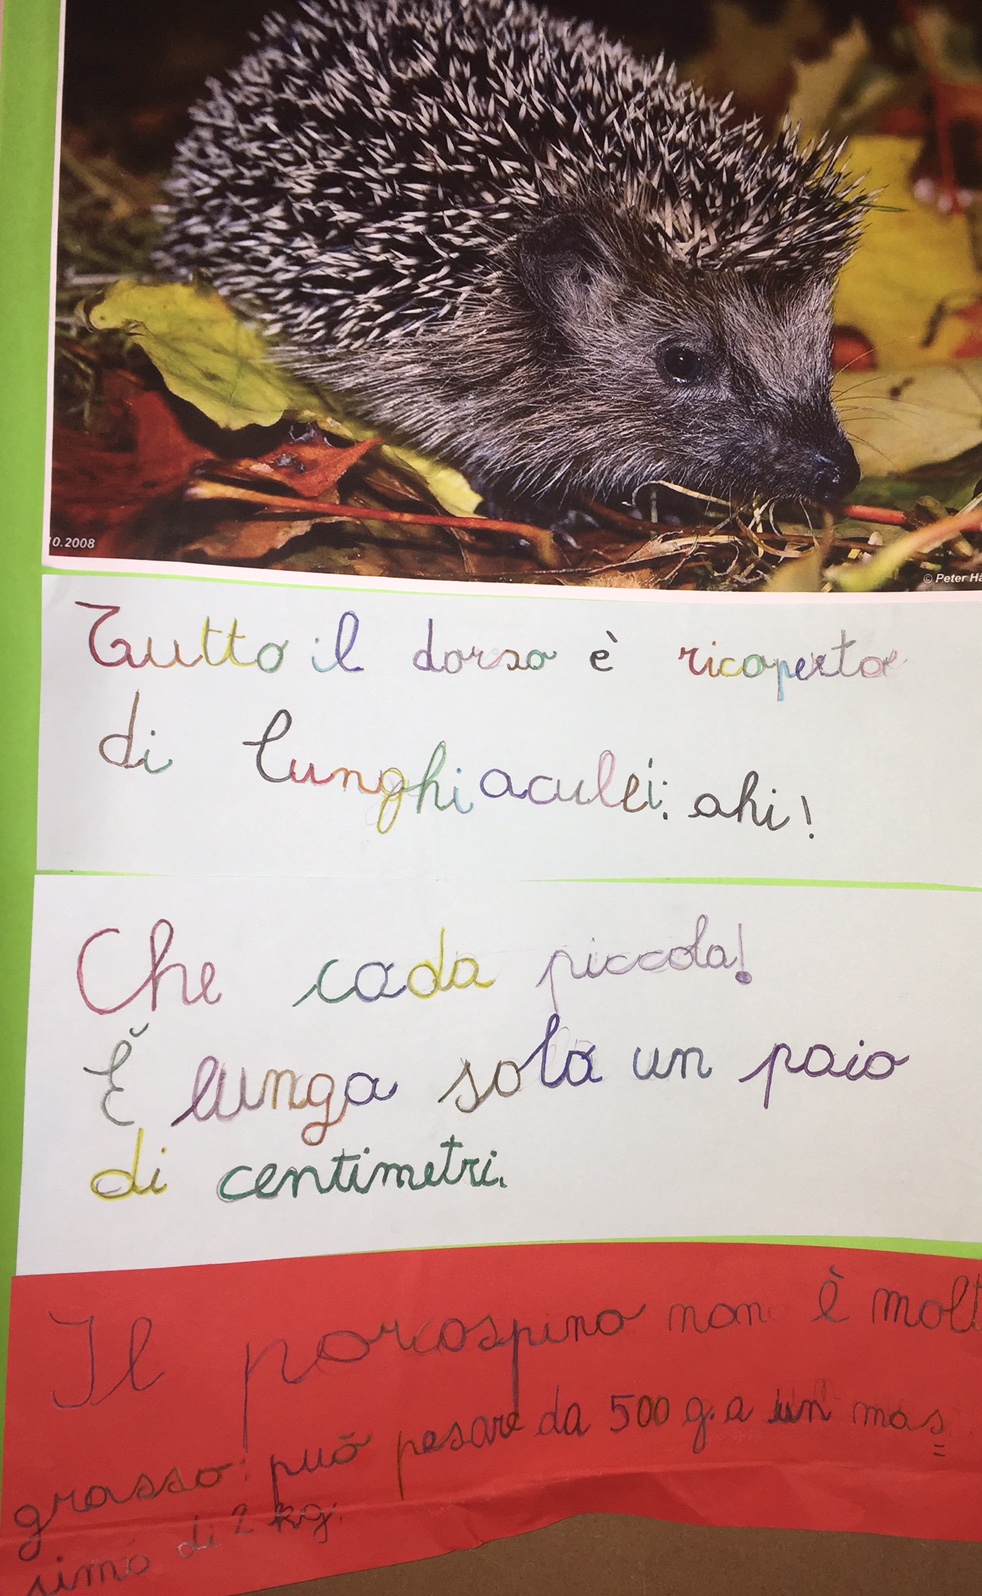 10.2008
© Peter Hä
Tutto il dorso è ricoperto
di lunghi aculei: ahi!
Che coda piccola!
È lunga solo un paio
di centimetri.
Il porcospino non è molt
grasso: può pesare da 500 g. a un mas
simo di 2 kg.